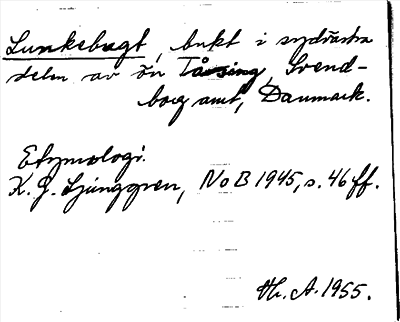 Lunkebugt, bukt i sydvästra
delen av ön Tåsing, Svend-
borg amt, Danmark.
Etymologi.
K. G. Ljunggren, NoB 1945, s. 46 ff.
Th. A. 1955.